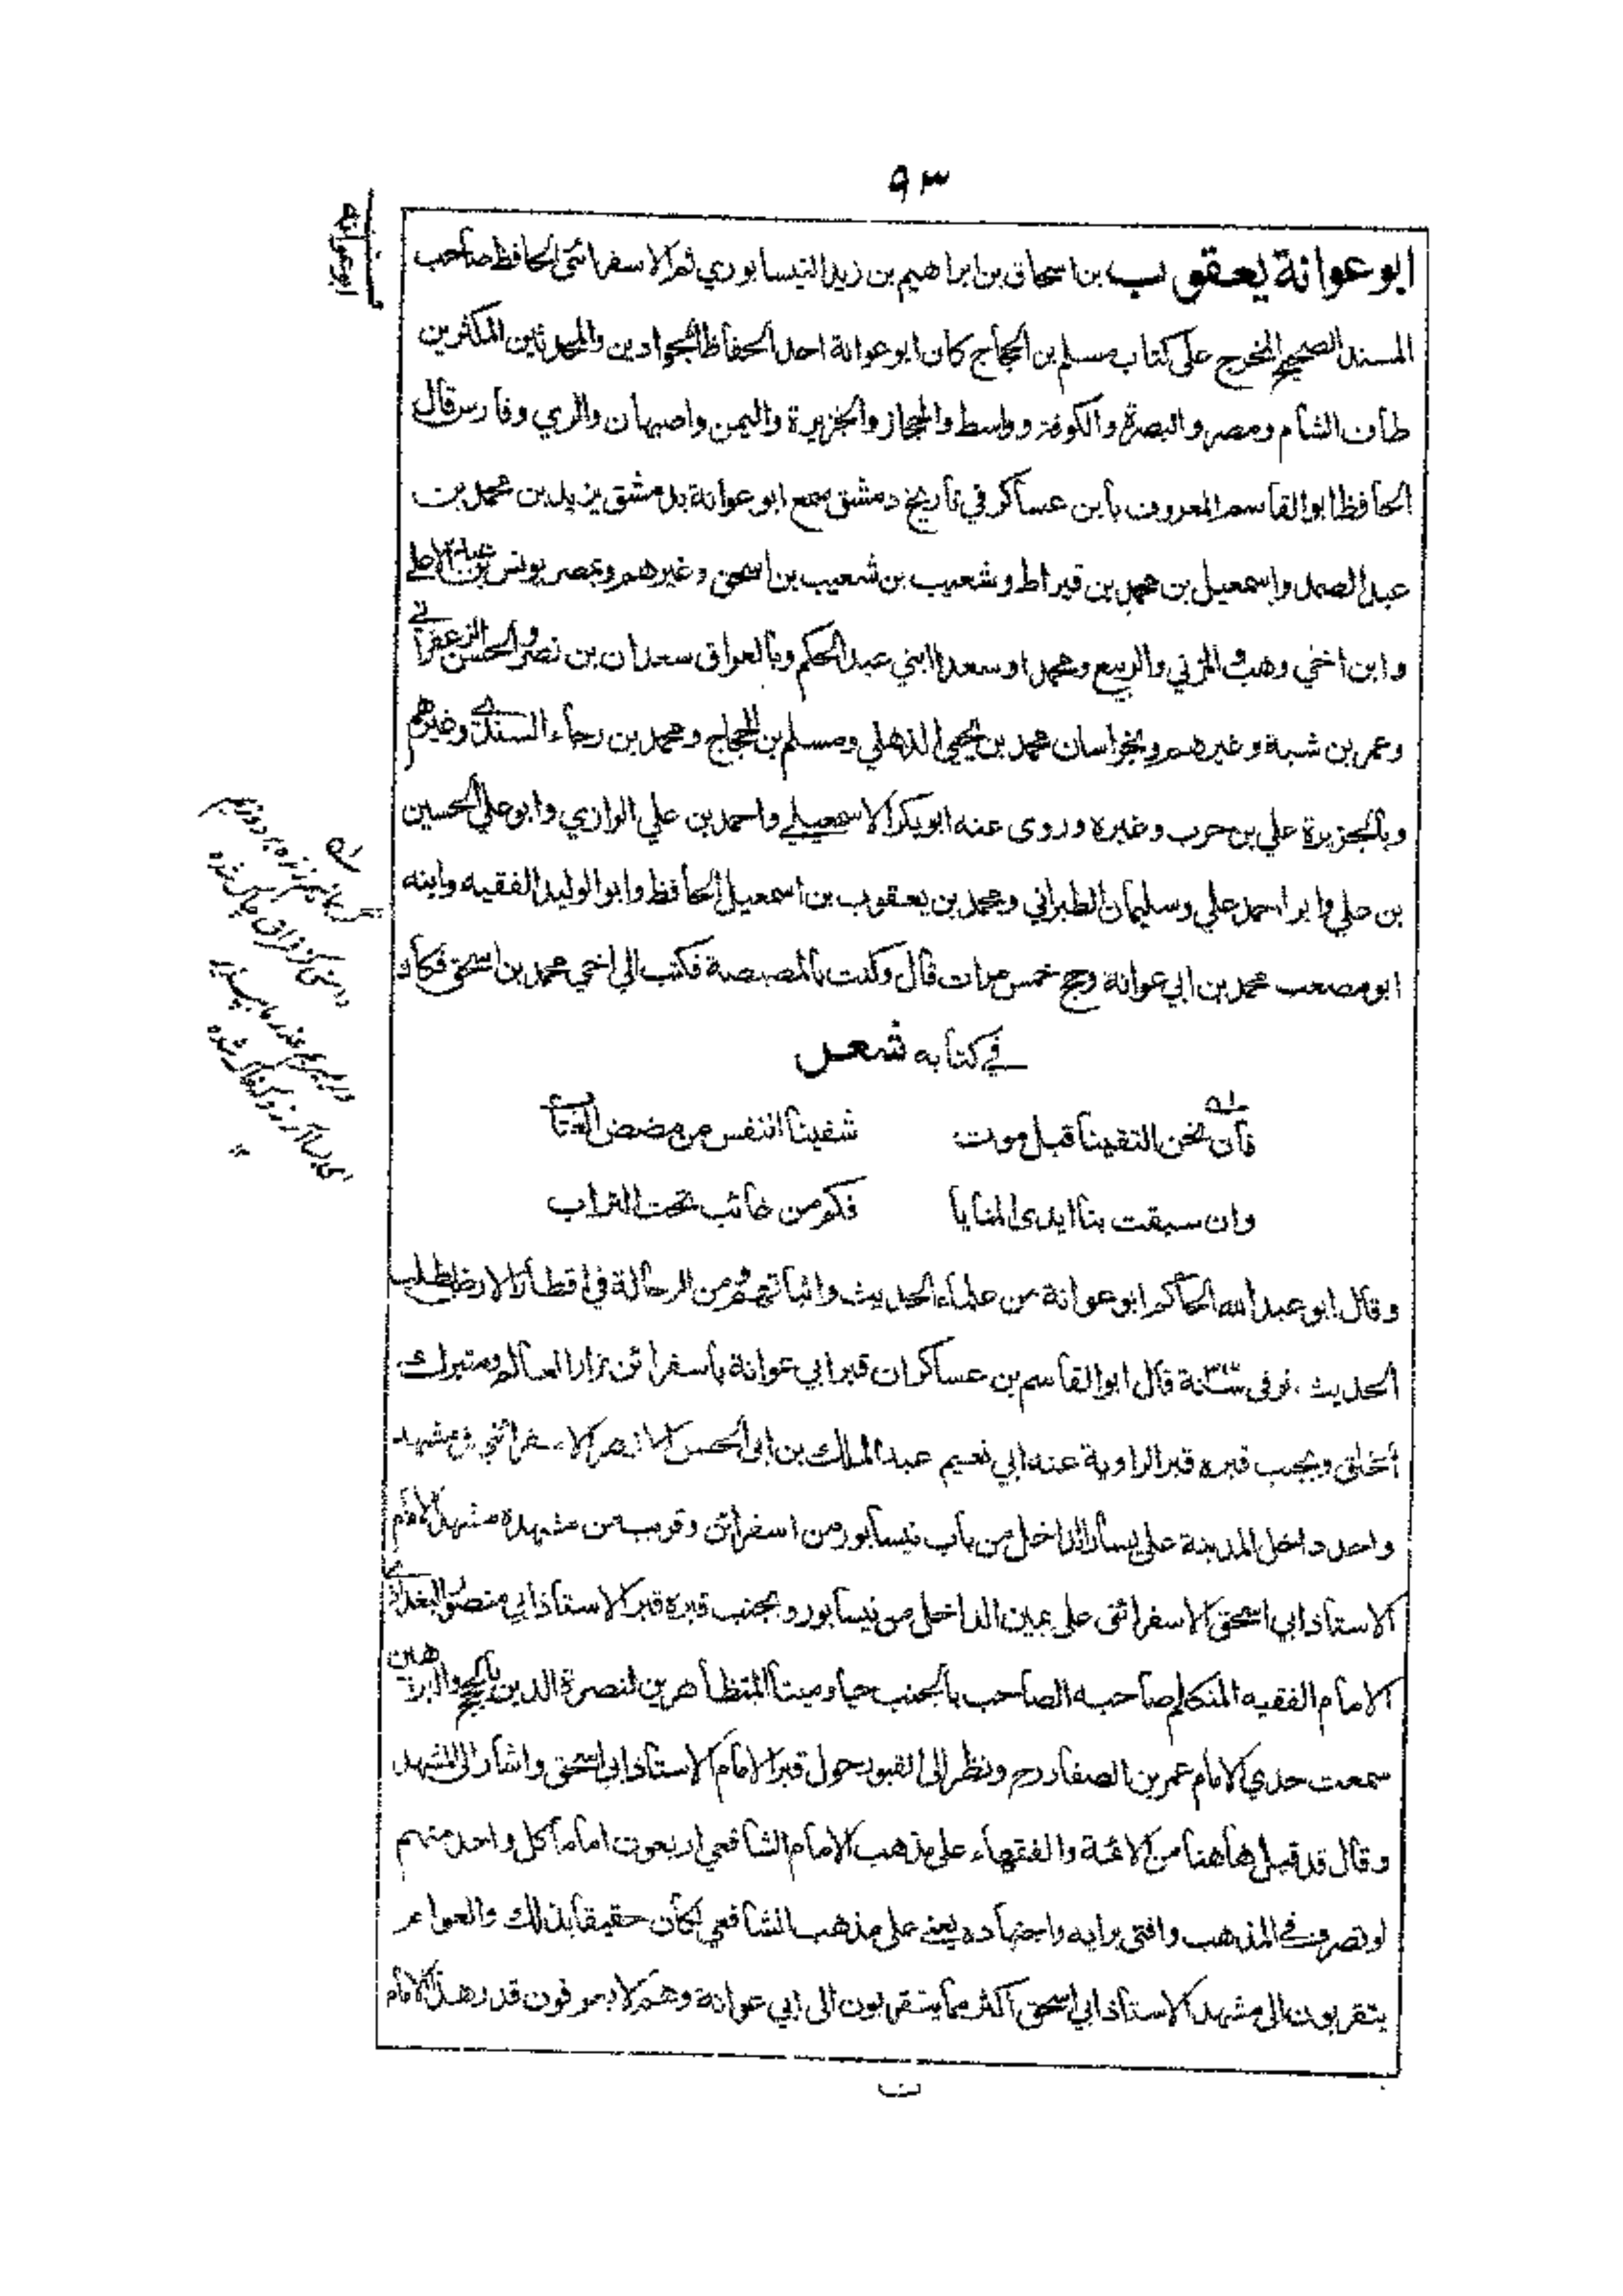 ٩٣
ابو عوانة يعقوب بن اسحاق بن ابراهيم بن زيد النيسابوري ثم الاسفرائنى الحافظ صاحب
المسند الصحيح المخرج على كتاب مسلم بن الحجاج كان ابو عوانة احد الحفاظ الجوادين والمحدثين المكثرين
طاف الشام ومصر والبصرة والكوفة وواسط والحجاز والجزيرة واليمن واصبهان والري وفارس قال
الحافظ ابو القاسم المعروف بابن عساكر في تاريخ دمشق سمع ابو عوانة بدمشق يزيد بن محمد بن
عبد الصمد واسمعيل بن محمد بن قيراط وشعيب بن شعيب بن اسحق وغيرهم وبمصر يونس بن عبد الاعلى
وابن اخي وهب والمزني والربيع ومحمدا وسعدا ابني عبد الحكم وبالعراق سعدان بن نصر والحسن الزعفراني
وعمر بن شبة وغيرهم وبخراسان محمد بن يحيى الذهلي ومسلم بن الحجاج ومحمد بن رجاء السندي وغيرهم
وبالجزيرة علي بن حرب وغيره وروى عنه ابو بكر الاسمعيلي واحمد بن علي الرازي وابو علي الحسين
بن علي وابو احمد علي وسليمان الطبراني ومحمد بن يعقوب بن اسمعيل الحافظ وابو الوليد الفقيه وابنه
ابو مصعب محمد بن ابي عوانة وحج خمس مرات قال وكنت بالمصيصة فكتب الي اخي محمد بن اسحق فكان
في كتابه شعر
فان نحن التقينا قبل موت شفينا النفس من مضض العتاب
وان سبقت بنا ايدى المنايا فكم من غائب تحت التراب
وقال ابو عبد الله الحاكم ابو عوانة من علماء الحديث واثباتهم ومن الرحالة في اقطار الارض لطلب
الحديث توفى سنة ٣١٦ قال ابو القاسم بن عساكر ان قبر ابي عوانة باسفرائن مزار العالم ومتبرك
الخلق وبجنب قبره قبر الراوية عنه ابي نعيم عبد الملك بن ابى الحسن الازهر الاسفرائنى في مشهد
واحد داخل المدينة على يسار الداخل من باب نيسابور من اسفرائن وقريب من مشهده مشهد الامام
الاستاذ ابي اسحق الاسفرائنى على يمين الداخل من نيسابور وبجنب قبره قبر الاستاذ ابي منصور البغدادي
الامام الفقيه المتكلم صاحبه الصاحب بالجنب حيا وميتا المتظاهرين لنصرة الدين بالحجج والبراهين
سمعت جدي الامام عمر بن الصفار رح ونظر الى القبور حول قبر الامام الاستاذ ابي اسحق واشار الى المشهد
وقال قد قيل هاهنا من الائمة والفقهاء على مذهب الامام الشافعي اربعون اماما كل واحد منهم
لو تصرف في المذهب وافتى برايه واجتهاده يعني على مذهب الشافعي لكان حقيقا بذلك والعوام
يتقربون الى مشهد الاستاذ ابي اسحق اكثر مما يتقربون الى ابي عوانة وهم لا يعرفون قدر هذا الامام
مسند ابو عوانه